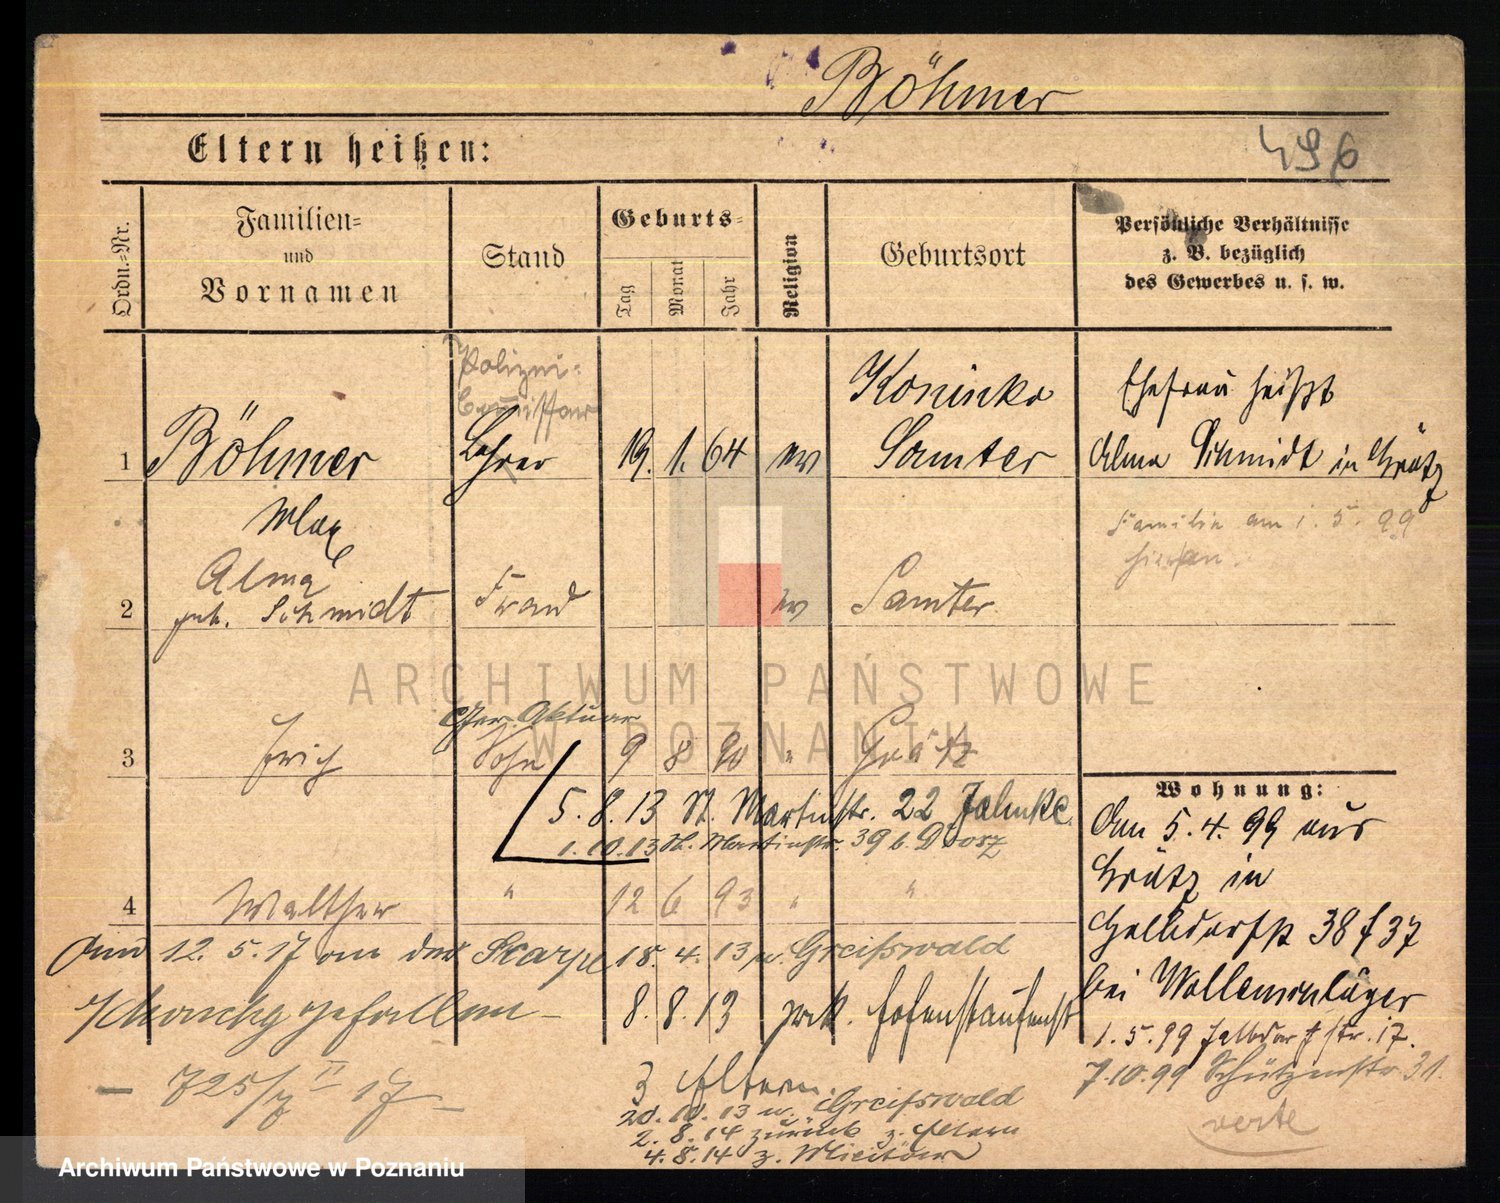 Böhmer
Eltern heißen:
496
Ordn.-Nr.
Familien-
und
Vornamen
Stand
Geburts-
Tag
Monat
Jahr
Religion
Geburtsort
Persönliche Verhältnisse
z. B. bezüglich
des Gewerbes u. s. w.
Polizei-
Lehrer
1
Böhmer
Max
19. 1. 64
ev
Koninko
Samter
Ehefrau heißt
Alma Schmidt in Grätz
Familie am 1. 5. 99
2
Alma
geb. Schmidt
Frau
ev
Samter.
ARCHIWUM PAŃSTWOWE
W POZNANIU
3
Erich
Ger. Aktuar
Sohn
9 8 90 "
Grätz
5. 8. 13 St. Martinstr. 22 Jahnke.
1. 10. 13 St. Martinstr. 39 b.
4
Walther
"
12 6 93 " "
Am 12. 5. 17 an der Skarpe
gefallen –
– 725/ II 17 –
15. 4. 13 n. Greifswald
8. 8. 13 zrck. Hohenstaufenst
z Eltern.
20. 10. 13 n. Greifswald
2. 8. 14 zurück z. Eltern
4. 8. 14 z. Militär
Wohnung:
Am 5. 4. 99 aus
Grätz in
38 f 37
bei
1. 5. 99 str. 17.
7.10.99 Schützenstr. 31.
verte
Archiwum Państwowe w Poznaniu